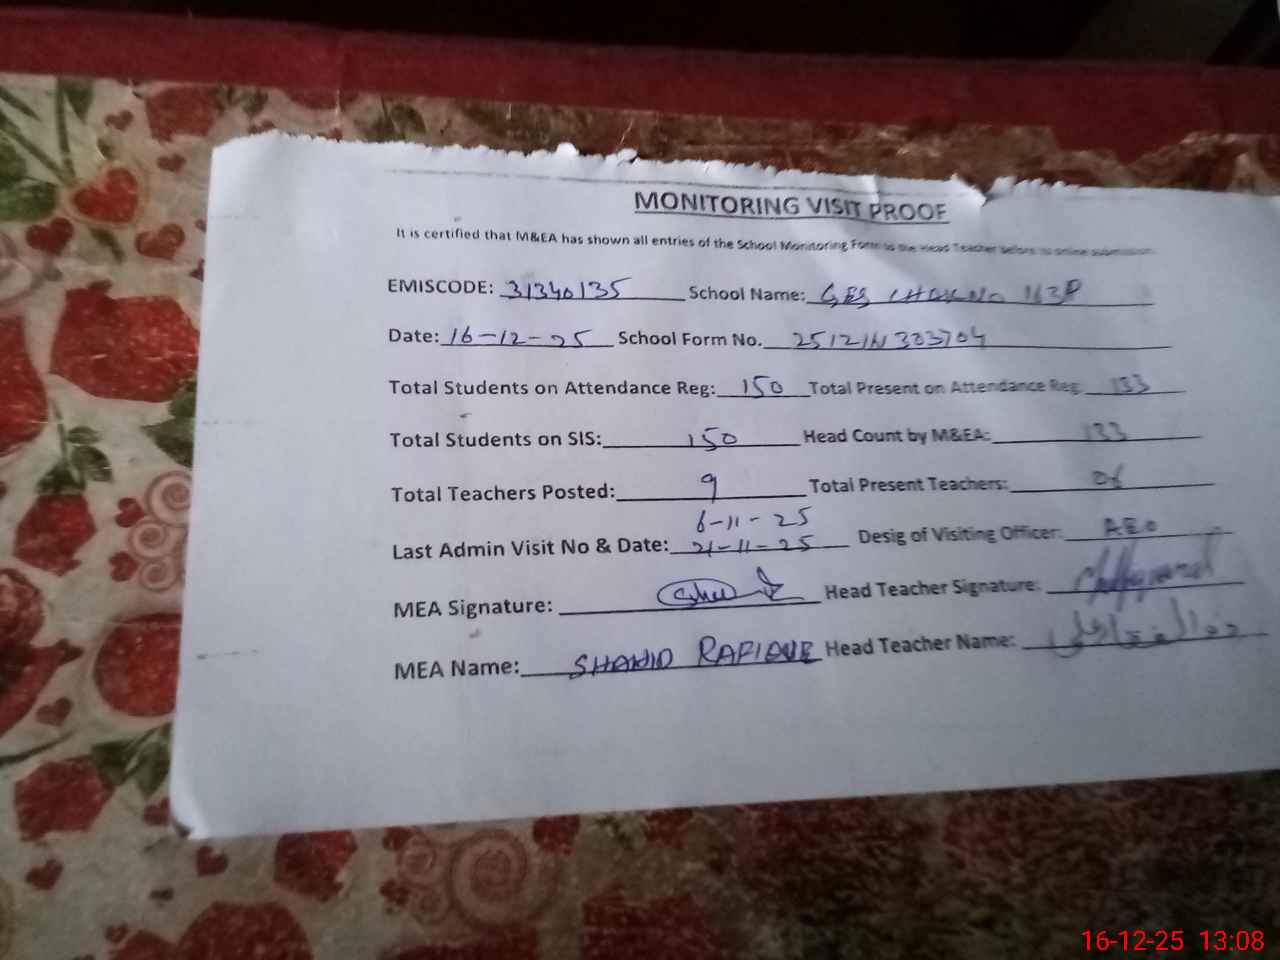 MONITORING VISIT PROOF
It is certified that M&EA has shown all entries of the School Monitoring Form to the Head Teacher before to online submission.
EMISCODE: 31340135 School Name: GES CHAK No 163P
Date: 16-12-25 School Form No. 
Total Students on Attendance Reg: 150 Total Present on Attendance Reg: 133
Total Students on SIS: 150 Head Count by M&EA: 133
Total Teachers Posted: 9 Total Present Teachers: 06
6-11-25
Last Admin Visit No & Date: 21-11-25 Desig of Visiting Officer: AEO
MEA Signature: Head Teacher Signature:
MEA Name: SHAHID RAFIQUE Head Teacher Name: ذوالفقار علی
16-12-25 13:08